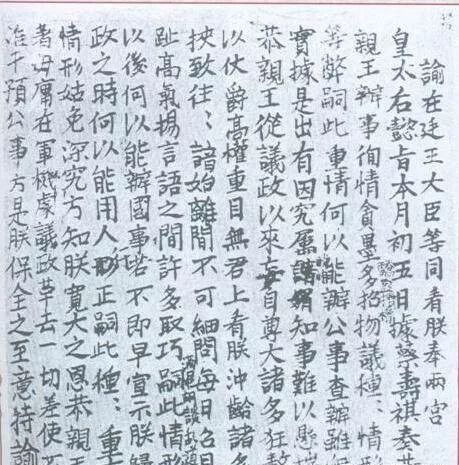 諭在廷王大臣等同看朕奉兩宮
皇太后懿旨本月初五日據蔡壽祺奏恭
親王辦事徇情貪墨多招物議種:情形
等弊嗣此重情何以能辦公事查辦雖
實據是出有因究屬知事難以懸揣
恭親王從議政以來妄自尊大諸多狂敖
以仗爵高權重目無君上看朕沖齡諸多
挾致往:諳始離間不可細問每日召見
趾高氣揚言語之間許多取巧嗣此情形
以後何以能辦國事若不即早宣示朕歸
政之時何以能用人行正嗣此種:重
情形姑免深究方知朕寬大之恩恭親王
著毋庸在軍機處議政革去一切差使不
准干預公事方是朕保全之至意特諭